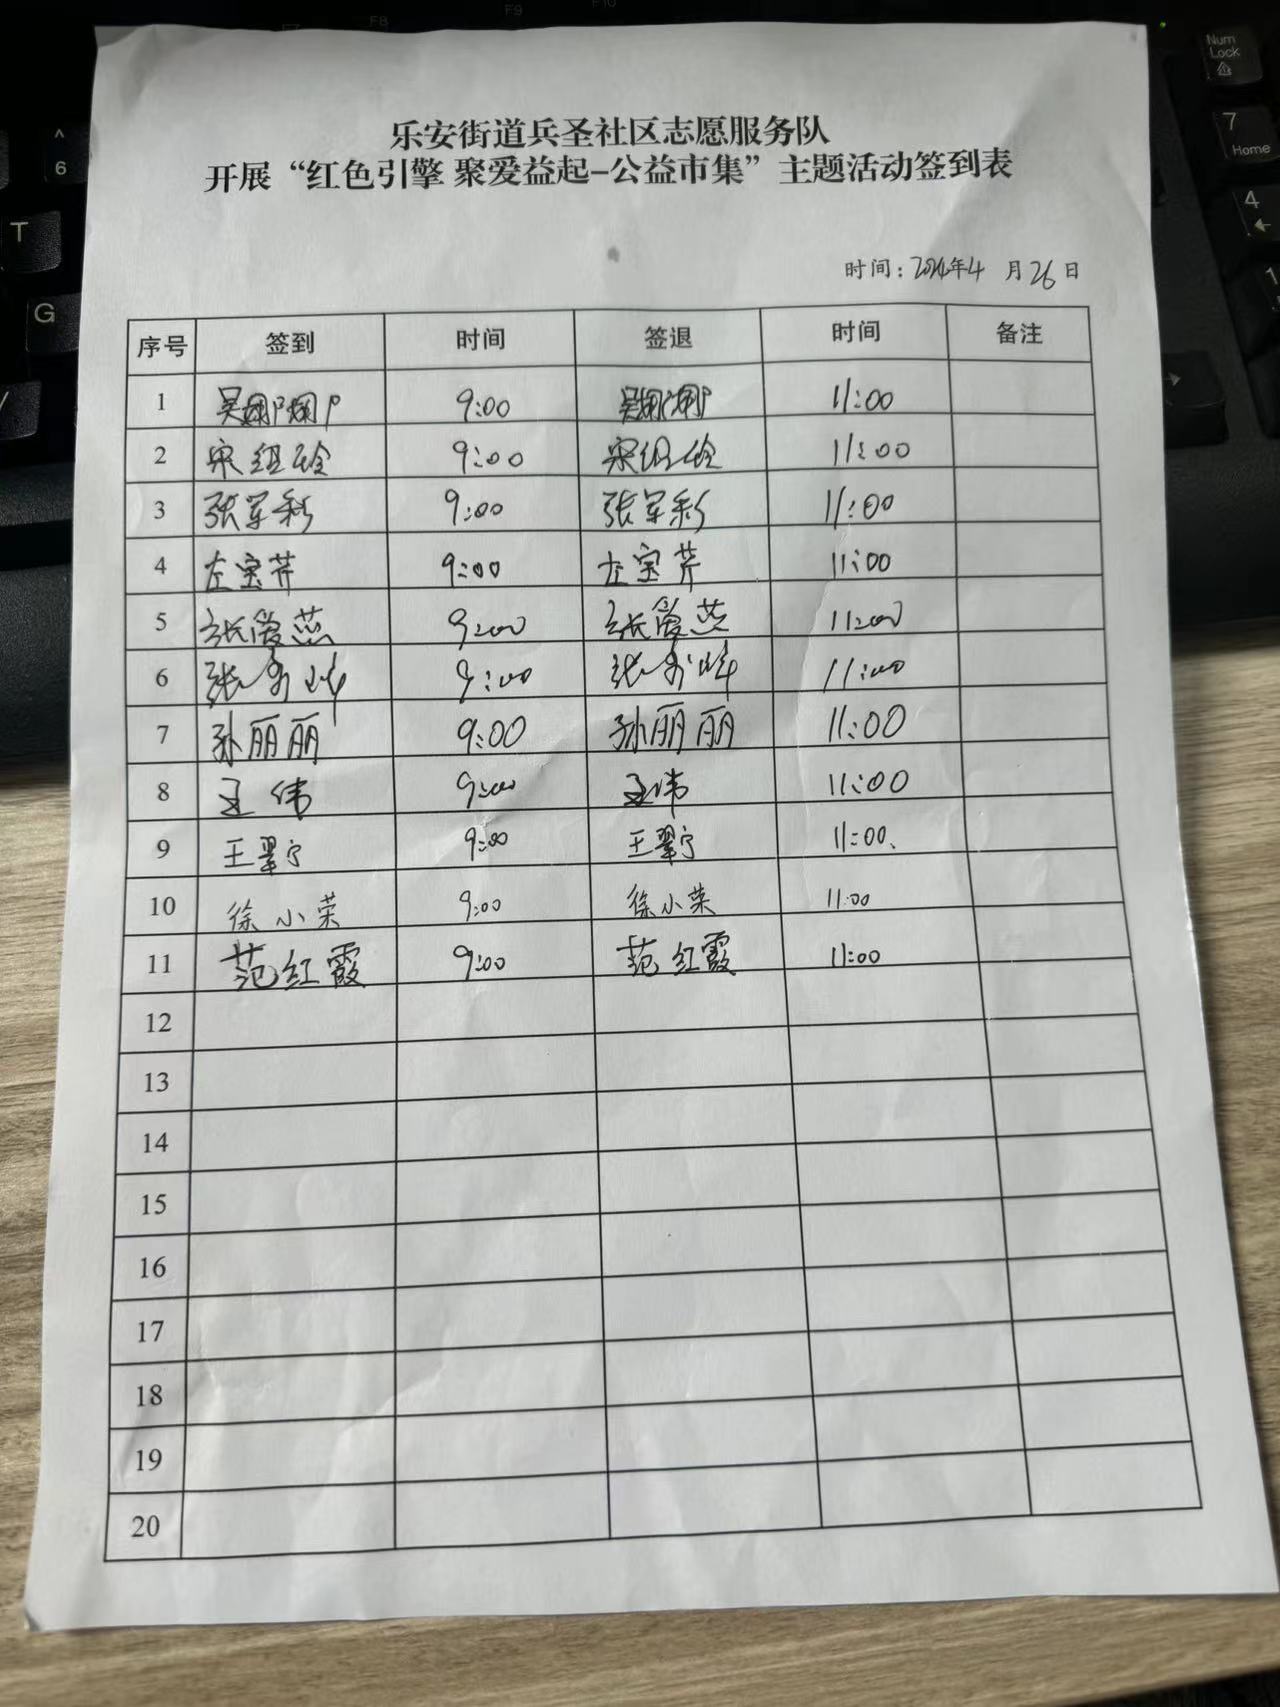 乐安街道兵圣社区志愿服务队
开展“红色引擎 聚爱益起-公益市集”主题活动签到表
时间：2024年4月26日
序号 签到 时间 签退 时间 备注
1 吴娜娜 9:00 吴娜娜 11:00
2 宋组玲 9:00 宋组玲 11:00
3 张军彩 9:00 张军彩 11:00
4 左宝芹 9:00 左宝芹 11:00
5 张爱燕 9:00 张爱燕 11:00
6 张秀峰 9:00 张秀峰 11:00
7 孙丽丽 9:00 孙丽丽 11:00
8 孟伟 9:00 孟伟 11:00
9 王翠宁 9:00 王翠宁 11:00
10 徐小荣 9:00 徐小荣 11:00
11 范红霞 9:00 范红霞 11:00
12
13
14
15
16
17
18
19
20
Num
Lock
7
Home
4
1
6
T
G
F8
F9
F10